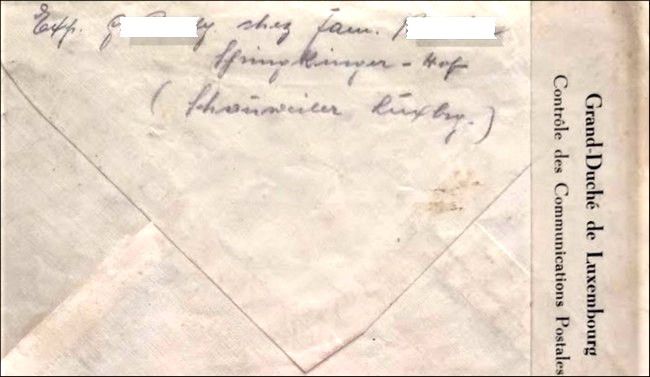 Exp. chez fam.
- Hof
(Schouweiler Luxbg.)
Grand-Duché de Luxembourg
Contrôle des Communications Postales